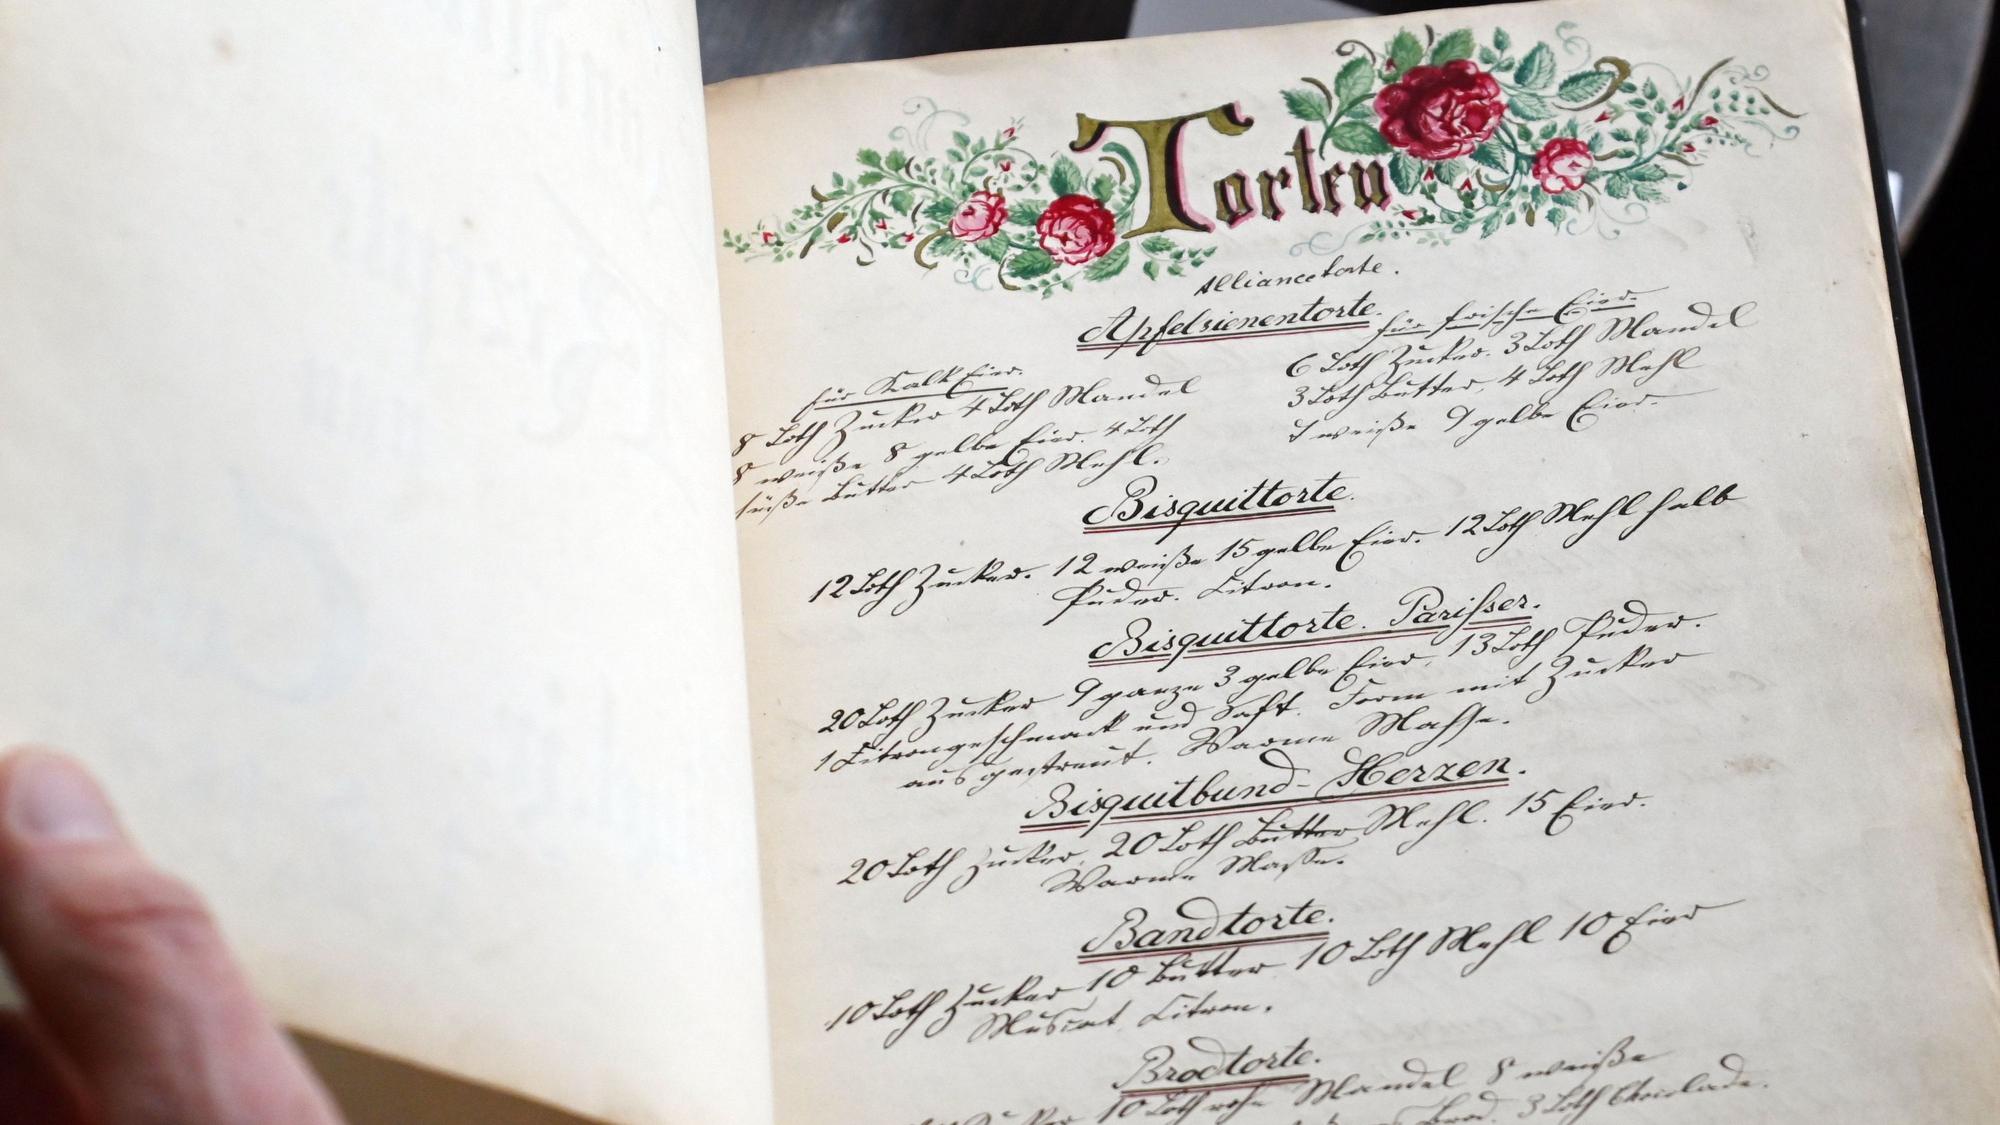 Torten
Alliancetorte.
Apfelsienentorte.
für Kalk Eier.
8 Loth Zucker 4 Loth Mandel
8 weiße 8 gelbe Eier. 4 Loth
süße Butter 4 Loth Mehl.
für frische Eier.
6 Loth Zucker. 3 Loth Mandel
3 Loth Butter, 4 Loth Mehl
7 weiße 9 gelbe Eier.
Bisquittorte.
12 Loth Zucker. 12 weiße 15 gelbe Eier. 12 Loth Mehl halb
Puder. Citron.
Bisquittorte. Parisser.
20 Loth Zucker 9 ganze 3 gelbe Eier, 13 Loth Puder.
1 Citrongeschmack und Saft. Form mit Zucker
ausgestreut. Warme Masse.
Bisquitbund-Herzen.
20 Loth Zucker, 20 Loth Butter Mehl. 15 Eier.
Warme Masse.
Bandtorte.
10 Loth Zucker 10 Butter 10 Loth Mehl 10 Eier
Muscat Citron.
Brodtorte.
Zucker 10 Loth rohe Mandel 8 weiße
Brod. 3 Loth Chocolade.